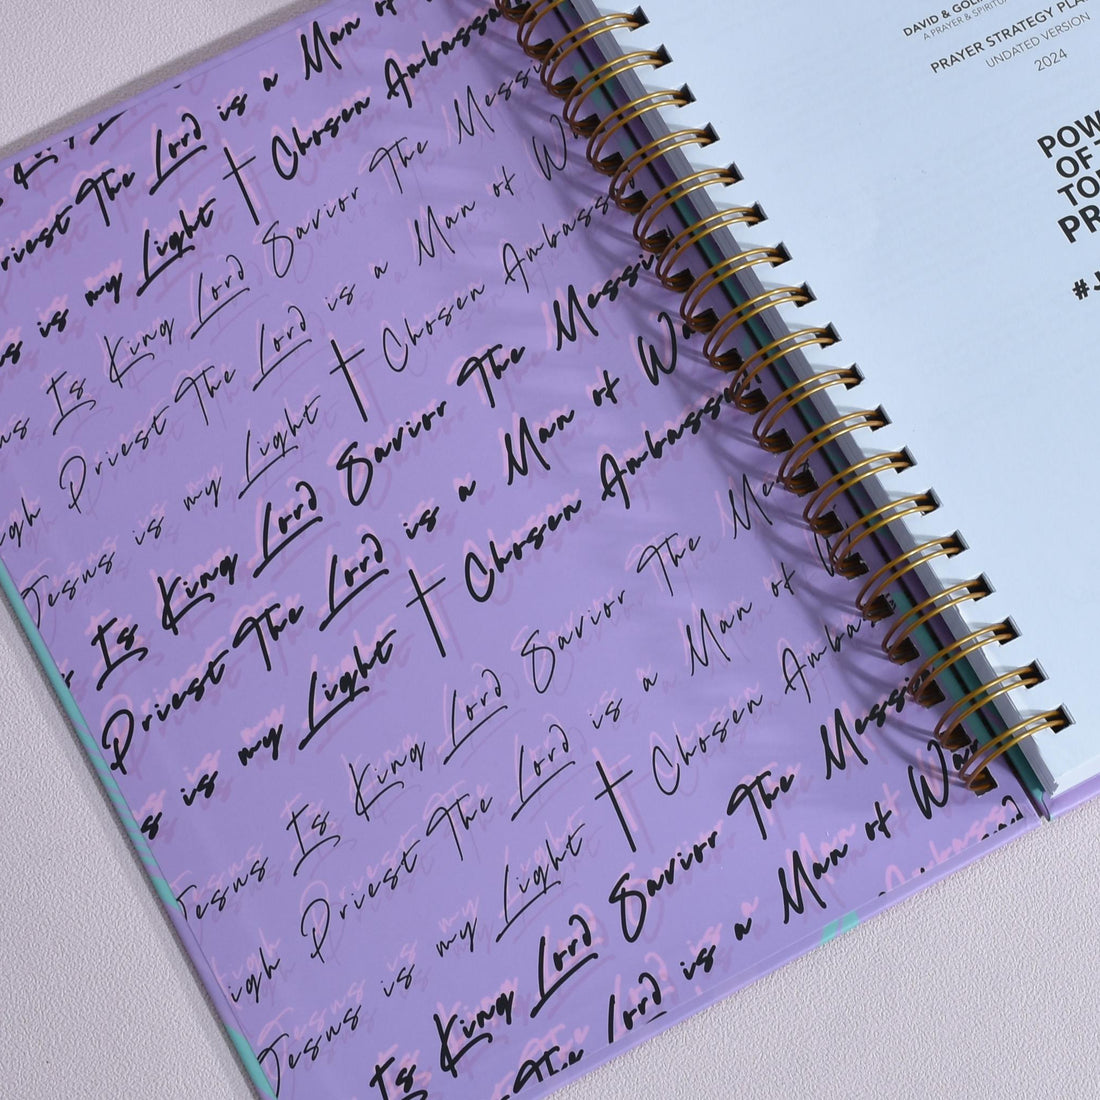 Priest The Lord is a Man of
is my Light Chosen Ambassa
Is King Lord Savior The Messi
Priest The Lord is a Man of Wa
Jesus is my Light Chosen Ambass
Is King Lord Savior The Messi
Priest The Lord is a Man of Wa
is my Light Chosen Ambassa
Jesus Is King Lord Savior The Me
igh Priest The Lord is a Man of
Jesus is my Light Chosen Amba
Is King Lord Savior The Messi
The Lord is a Man of Wa
DAVID &
A PRAYER &
PRAYER STRATEGY PLA
UNDATED VERSION
2024
POW
OF
TO
PR
#J